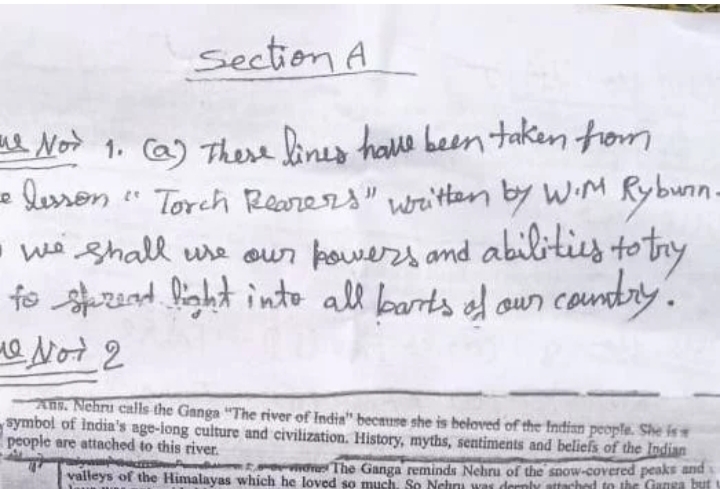 Section A
No: 1. (a) These lines have been taken from
lesson "Torch Bearers" written by W.M Ryburn.
we shall use our powers and abilities to try
to spread light into all parts of our country.
No: 2
Ans. Nehru calls the Ganga "The river of India" because she is beloved of the Indian people. She is a
symbol of India's age-long culture and civilization. History, myths, sentiments and beliefs of the Indian
people are attached to this river.
The Ganga reminds Nehru of the snow-covered peaks and
valleys of the Himalayas which he loved so much. So Nehru was deeply attached to the Ganga but